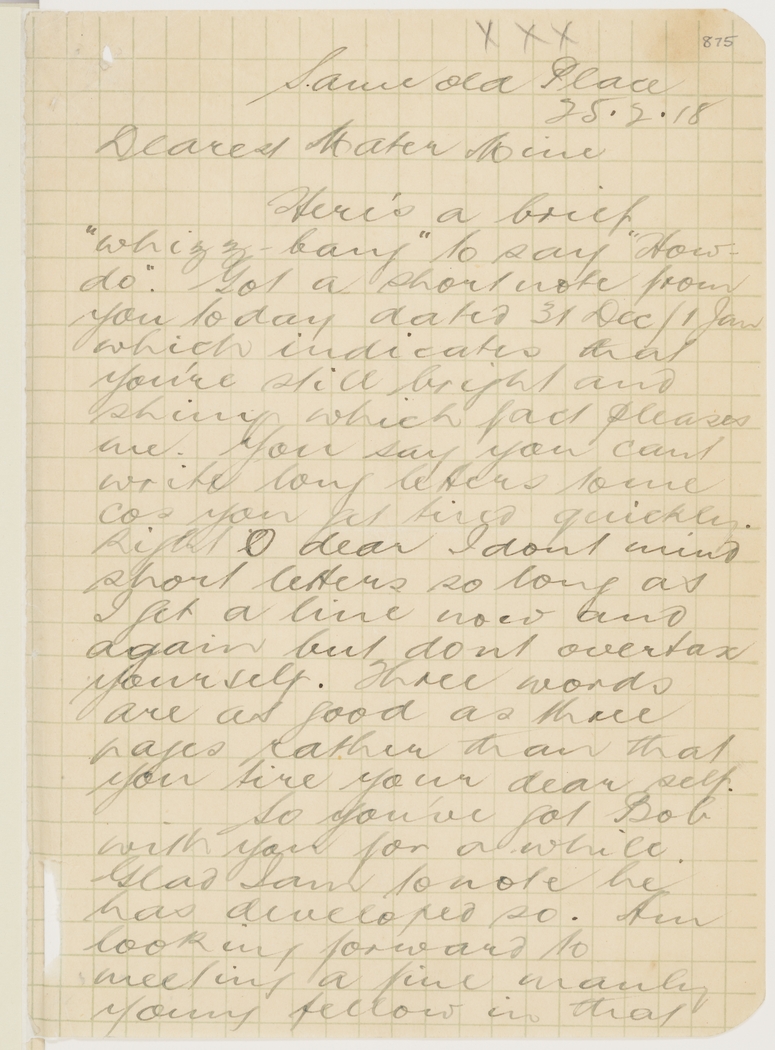 X X X
875
Same old Place
25.2.18
Dearest Mater Mine
Here's a brief
"whizz-bang" to say "How-
do". Got a short note from
you today dated 31 Dec/1 Jan
which indicates that
you're still bright and
shiny which fact pleases
me. You say you cant
write long letters to me
cos you get tired quickly.
Right O dear I dont mind
short letters so long as
I get a line now and
again but dont overtax
yourself. Three words
are as good as three
pages rather than that
you tire your dear self.
So you've got Bob
with you for a while.
Glad I am to note he
has developed so. Am
looking forward to
meeting a fine manly
young fellow in that